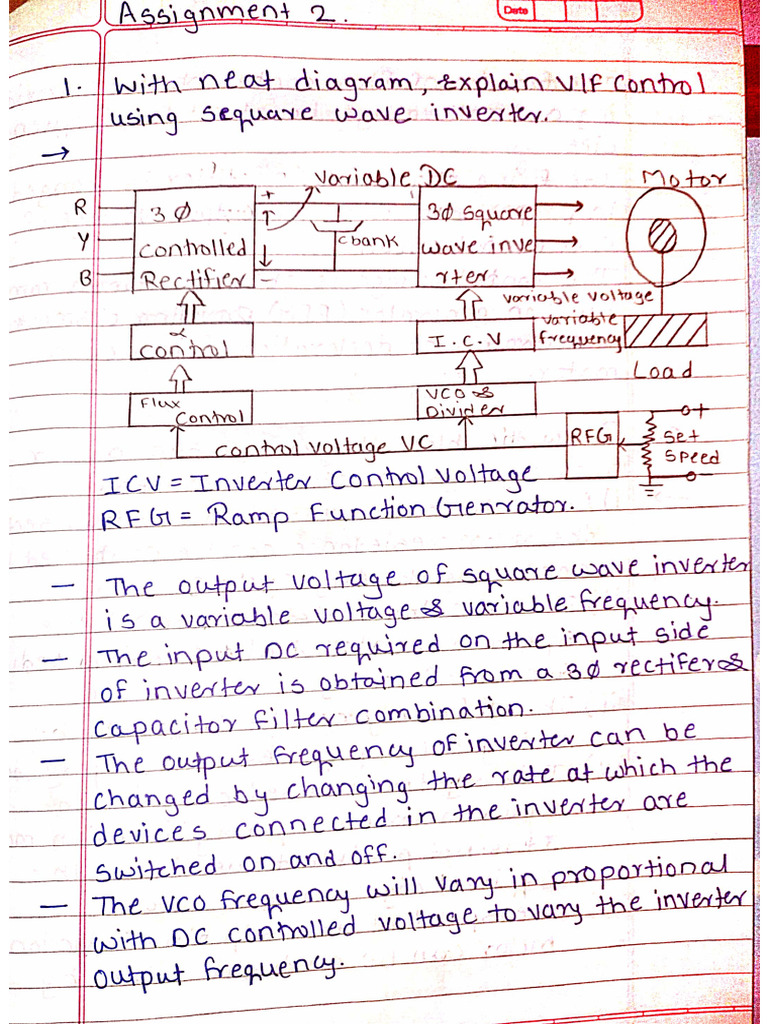 Assignment 2.
Date
1. With neat diagram, Explain V/F control
using sequare wave inverter.
→
variable DC
Motor
R
Y
B
3Ø
controlled
Rectifier
+
-
C bank
3Ø square
wave inve
rter
variable voltage
variable
frequency
α
control
I.C.V
Load
Flux
control
VCO &
Divider
control voltage VC
RFG
+
Set
Speed
-
ICV = Inverter Control Voltage
RFG = Ramp Function Genrator.
- The output voltage of square wave inverter
is a variable voltage & variable frequency.
- The input DC required on the input side
of inverter is obtained from a 3Ø rectifer &
capacitor filter combination.
- The output frequency of inverter can be
changed by changing the rate at which the
devices connected in the inverter are
switched on and off.
- The VCO frequency will vary in proportional
with DC controlled voltage to vary the inverter
output frequency.